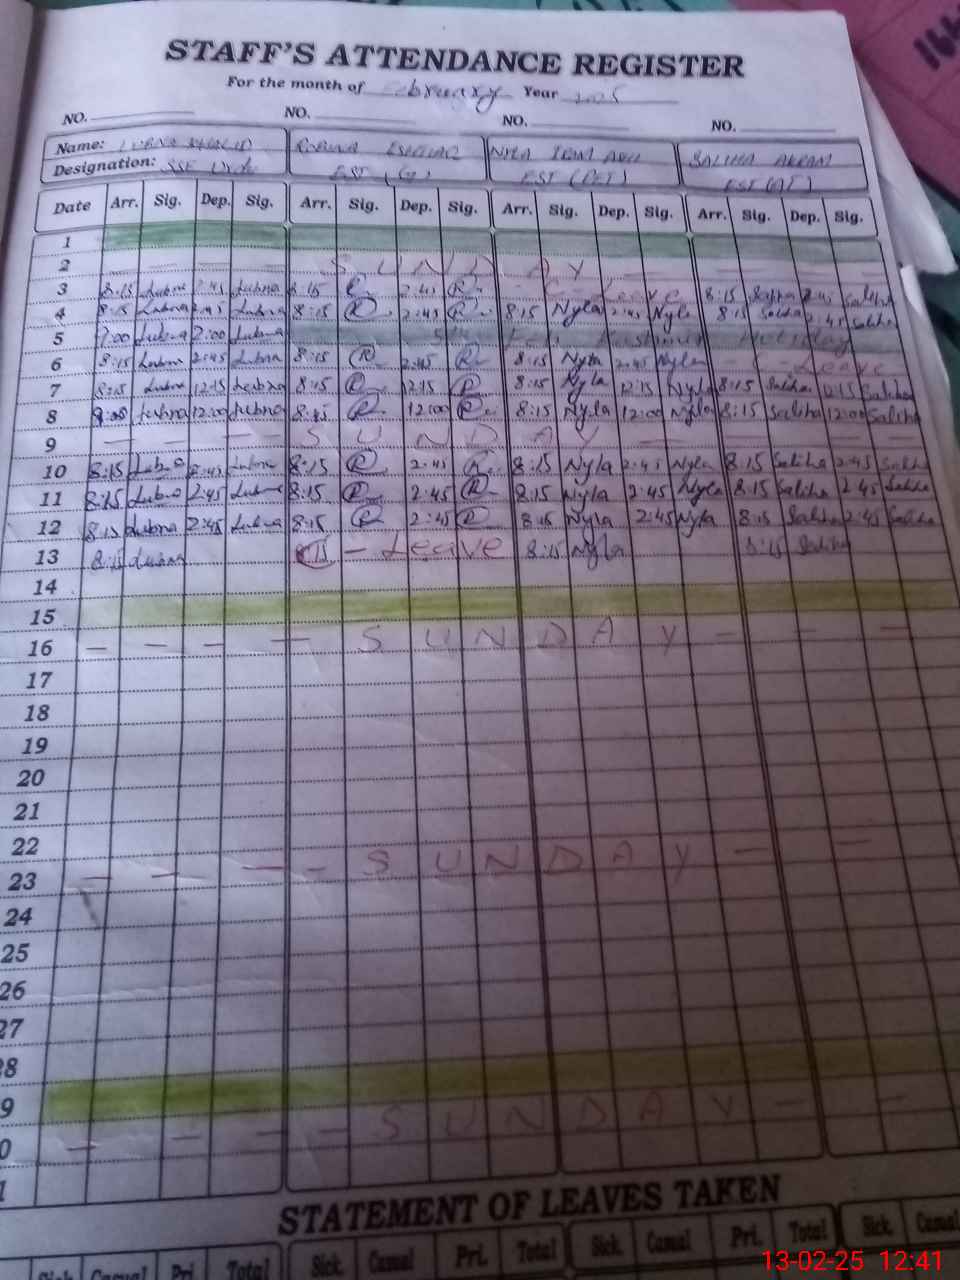 STAFF'S ATTENDANCE REGISTER
For the month of February Year 2025
NO. NO. NO. NO.
Name: LUBNA KHALID RUBINA NYLA SALIHA AKRAM
Designation: SSE EST (G) EST (PET) EST (AT)
Date Arr. Sig. Dep. Sig. Arr. Sig. Dep. Sig. Arr. Sig. Dep. Sig. Arr. Sig. Dep. Sig.
1
2 — — — — S U N D A Y — — — —
3 8:15 Lubna 2:45 Lubna 8:15 R 2:45 R C - Leave 8:15 Saliha 2:45 Saliha
4 8:15 Lubna 2:45 Lubna 8:15 R 2:45 R 8:15 Nyla 2:45 Nyla 8:15 Saliha 2:45 Saliha
5 7:00 Lubna 2:00 Lubna 5th Feb Kashmir Holiday
6 8:15 Lubna 2:45 Lubna 8:15 R 2:45 R 8:15 Nyla 2:45 Nyla C - Leave
7 8:15 Lubna 12:15 Lubna 8:15 R 12:15 R 8:15 Nyla 12:15 Nyla 8:15 Saliha 12:15 Saliha
8 Lubna 12:00 Lubna 8:15 R 12:00 R 8:15 Nyla 12:00 Nyla 8:15 Saliha 12:00 Saliha
9 — — — — S U N D A Y — — —
10 8:15 Lubna 2:45 Lubna 8:15 R 2:45 R 8:15 Nyla 2:45 Nyla 8:15 Saliha 2:45 Saliha
11 8:15 Lubna 2:45 Lubna 8:15 R 2:45 R 8:15 Nyla 2:45 Nyla 8:15 Saliha 2:45 Saliha
12 8:15 Lubna 2:45 Lubna 8:15 R 2:45 R 8:15 Nyla 2:45 Nyla 8:15 Saliha 2:45 Saliha
13 8:15 Lubna - Leave 8:15 Nyla 8:15 Saliha
14
15
16 — — — — S U N D A Y — — —
17
18
19
20
21
22
23 — — — — S U N D A Y — —
24
25
26
27
28
9
0 — — — — S U N D A Y — —
1
STATEMENT OF LEAVES TAKEN
Sick Casual Pri. Total Sick Casual Pri. Total Sick Casual Pri. Total Sick Casual
13-02-25 12:41